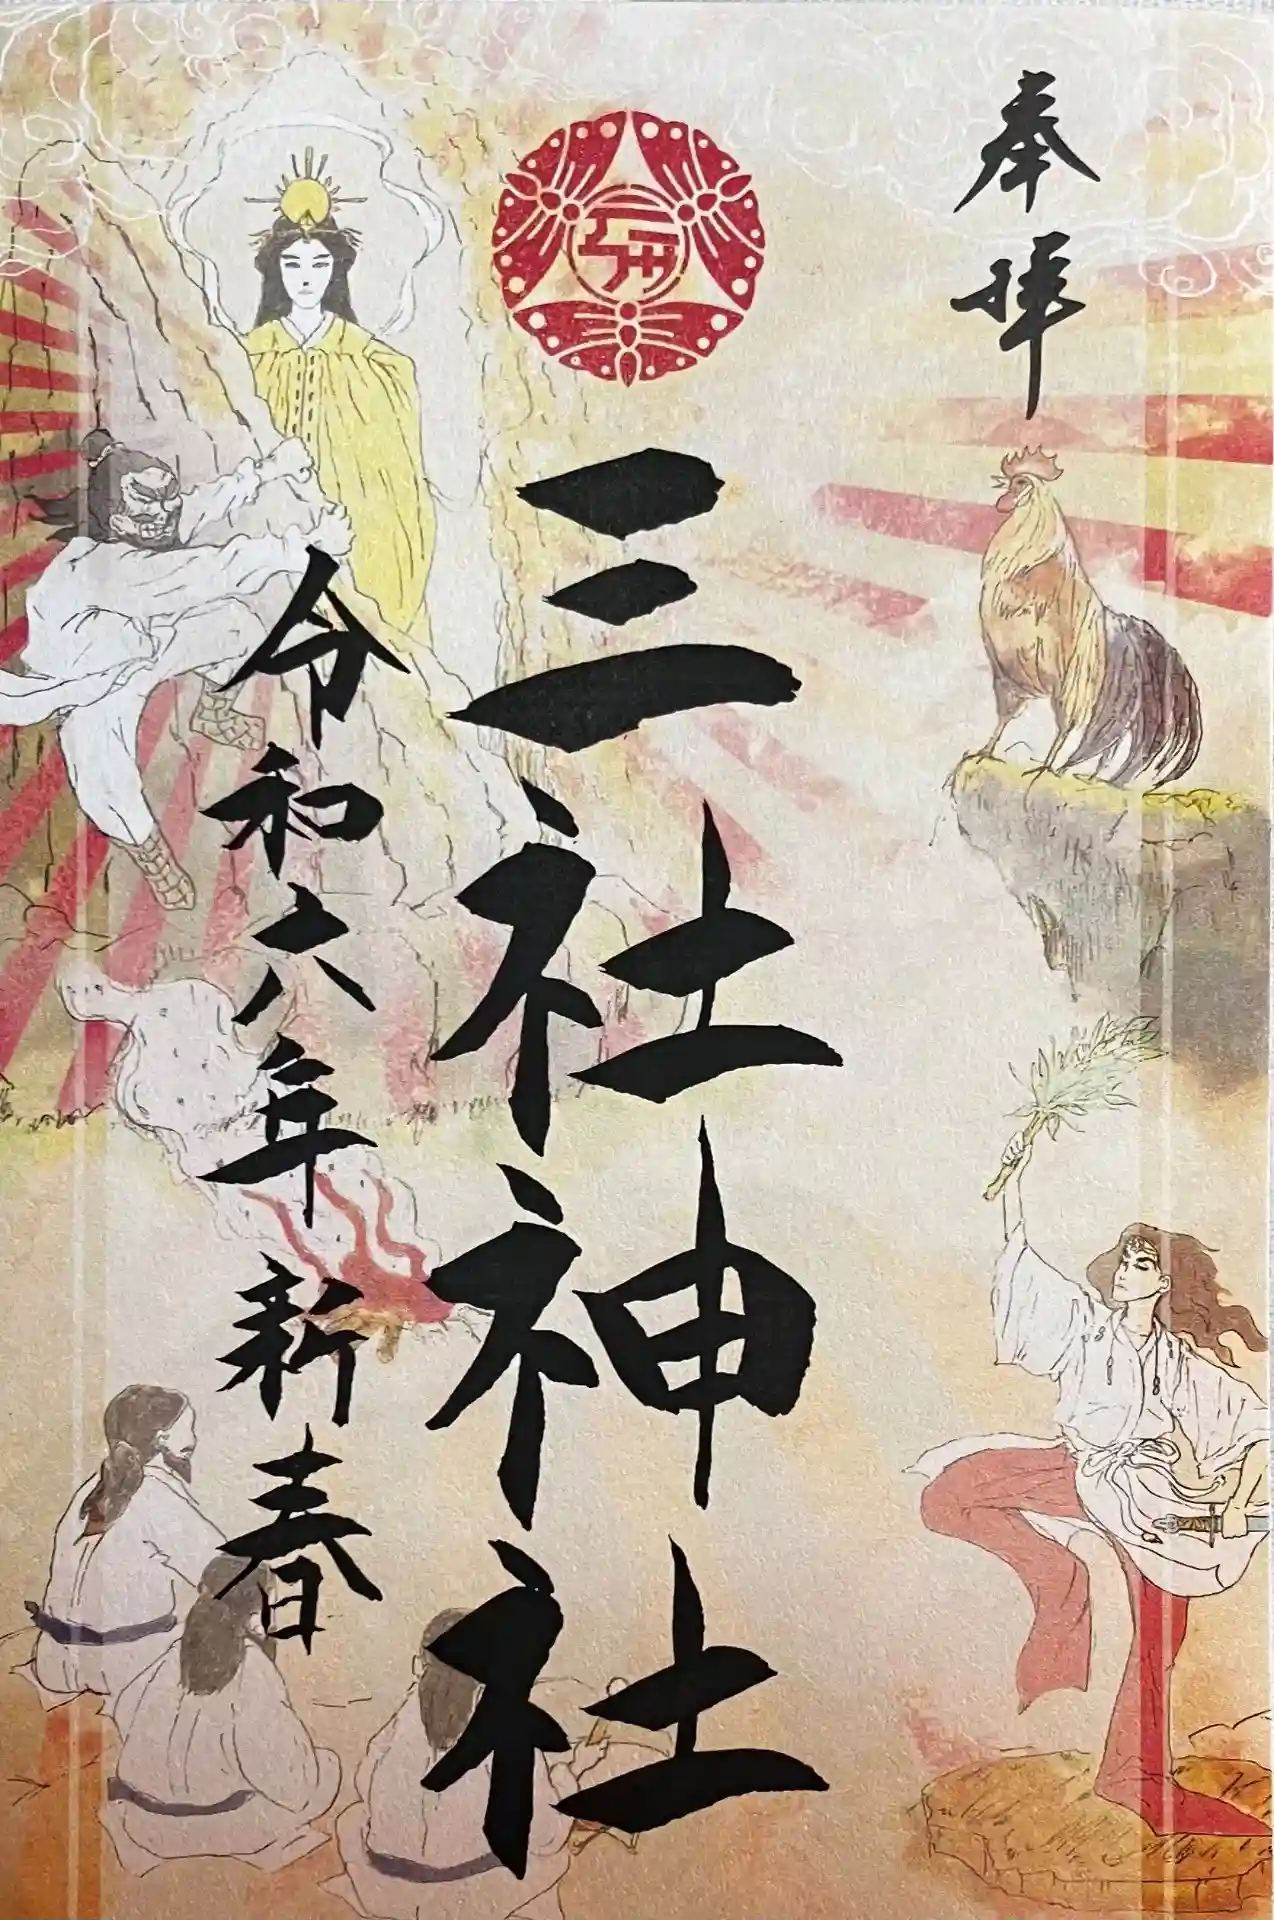 奉拝
三社神社
令和六年 新春